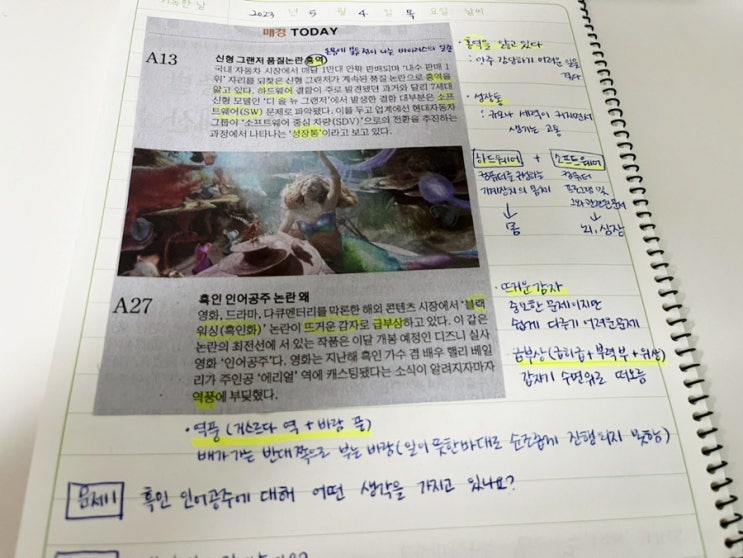 기록한 날 2023 년 5 월 4 일 목 요일 날씨
매경 TODAY
A13
신형 그랜저 품질논란 홍역
국내 자동차 시장에서 매달 1만대 안팎 판매되며 '내수 판매 1
위' 자리를 되찾은 신형 그랜저가 계속된 품질 논란으로 홍역을
앓고 있다. 하드웨어 결함이 주로 발견됐던 과거와 달리 7세대
신형 모델인 '디 올 뉴 그랜저'에서 발생한 결함 대부분은 소프
트웨어(SW) 문제로 파악됐다. 이를 두고 업계에선 현대자동차
그룹이 '소프트웨어 중심 차량(SDV)'으로의 전환을 추진하는
과정에서 나타나는 '성장통'이라고 보고 있다.
· 홍역을 앓고 있다
: 아주 감당하기 어려운 일을
겪다
· 성장통
: 규모나 세력이 커지면서
생기는 고통
하드웨어 + 소프트웨어
컴퓨터를 구성하는
기계장치의 몸체
컴퓨터
프로그램 및
↓
몸
↓
뇌, 심장
A27
흑인 인어공주 논란 왜
영화, 드라마, 다큐멘터리를 막론한 해외 콘텐츠 시장에서 '블랙
워싱(흑인화)' 논란이 뜨거운 감자로 급부상하고 있다. 이 같은
논란의 최전선에 서 있는 작품은 이달 개봉 예정인 디즈니 실사
영화 '인어공주'다. 영화는 지난해 흑인 가수 겸 배우 핼리 베일
리가 주인공 '에리얼' 역에 캐스팅됐다는 소식이 알려지자마자
역풍에 부딪혔다.
· 뜨거운 감자
중요한 문제이지만
쉽게 다루기 어려운 문제
급부상(급히 급 + 뜰 부 + 위 상)
갑자기 수면위로 떠오름
· 역풍 (거스르다 역 + 바람 풍)
배가 가는 반대쪽으로 부는 바람 (일이 뜻한바대로 순조롭게 진행되지 못함)
문제1 흑인 인어공주에 대해 어떤 생각을 가지고 있나요?